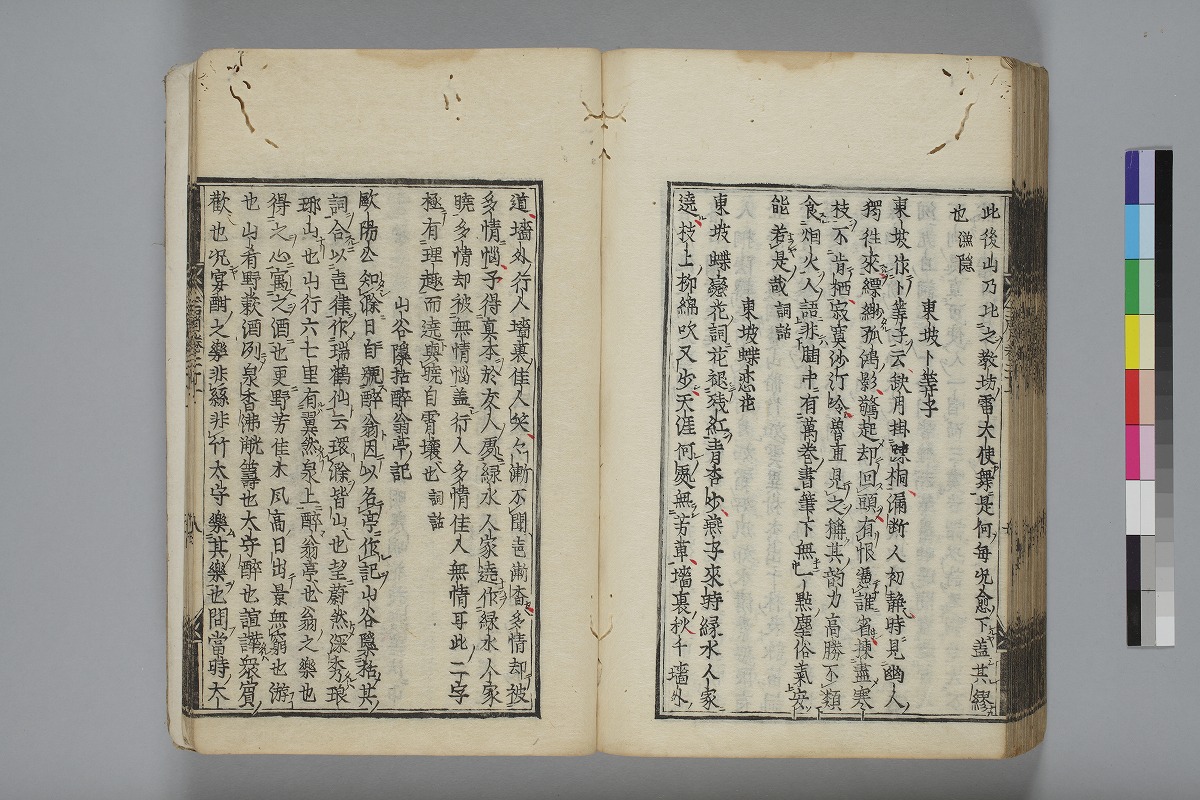 此後山乃比之敎坊雷大使舞是何每况愈下盖其繆
也 漁隱
東坡卜筭子
東坡作卜筭子云缺月掛踈桐漏断人初静時見幽人
獨徃來縹緲孤鴻影驚起却回頭有恨無誰省揀盡寒
枝不肯栖寂寞沙汀冷魯直見之稱其韵力高勝不類
食烟火人語非胷中有萬卷書筆下無一點塵俗氣安
能若是哉 詞話
東坡蝶恋花
東坡蝶戀花詞花褪残紅青杏少燕子來時緑水人家
遶枝上柳綿吹又少天涯何處無芳草墻裏秋千墻外
道墻外行人墻裏佳人笑々漸不聞声漸杳多情却被
多情惱予得真本於友人處緑水人家遶作緑水人家
曉多情却被無情惱盖行人多情佳人無情耳此二字
極有理趣而遶與曉自霄壤也 詞話
山谷隱括醉翁亭記
歐陽公知滁日自號醉翁因以名亭作記山谷隱括其
詞合以声律作瑞鶴仙云環滁皆山也望蔚然深秀琅
琊山也山行六七里有翼然泉上醉翁亭也翁之樂也
得之心寓之酒也更野芳佳木風高日出景無窮也游
也山肴野蔌酒冽泉香沸觥籌也太守醉也諠譁衆賓
歡也况宴酣之樂非絲非竹太守樂其樂也問當時太